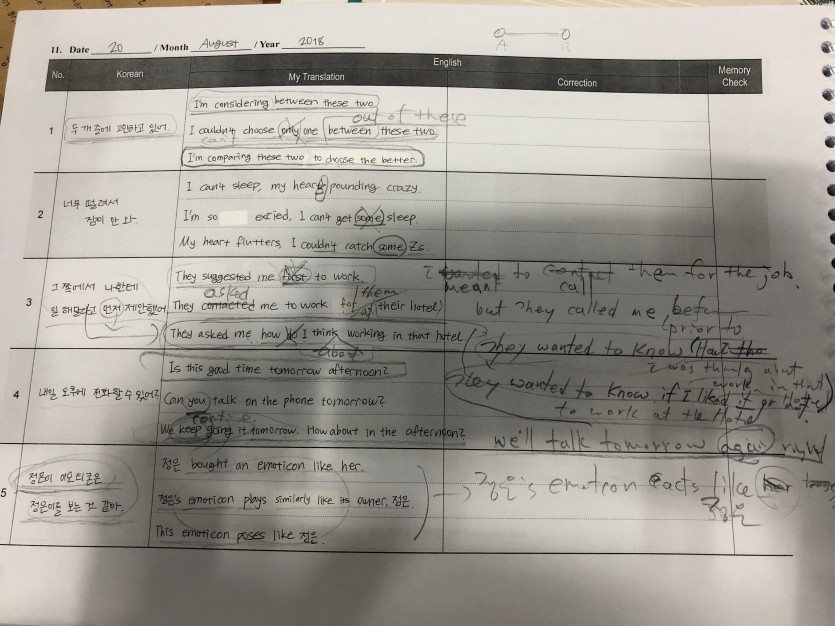 11. Date 20 / Month August / Year 2018
A B
No. Korean English Memory Check
My Translation Correction
1 두 개 중에 고민하고 있어.
I'm considering between these two.
out of these
I couldn't choose only one between these two.
can't
I'm comparing these two to choose the better.
2 너무 떨려서 잠이 안 와.
I can't sleep, my heart pounding crazy.
I'm so excited, I can't get some sleep.
My heart flutters, I couldn't catch some Zs.
3 그 쪽에서 나한테 일 해달라고 먼저 제안했어
They suggested me first to work.
I wanted to contact them for the job.
meant call
asked them
They contacted me to work for their hotel)
at
but they called me, before
prior to
They asked me how do I think working in that hotel
about
They wanted to know
I was about
work in that
They wanted to know if I liked it or
to work at the Hotel
4 내일 오후에 전화할 수 있어?
Is this good time tomorrow afternoon?
Can you talk on the phone tomorrow?
We keep going it tomorrow. How about in the afternoon?
we'll talk tomorrow again right
5 정은이 이모티콘은 정은이를 보는 것 같아.
정은 bought an emoticon like her.
정은's emoticon plays similarly like its owner, 정은.
정은's emoticon acts like her
정은
This emoticon poses like 정은.